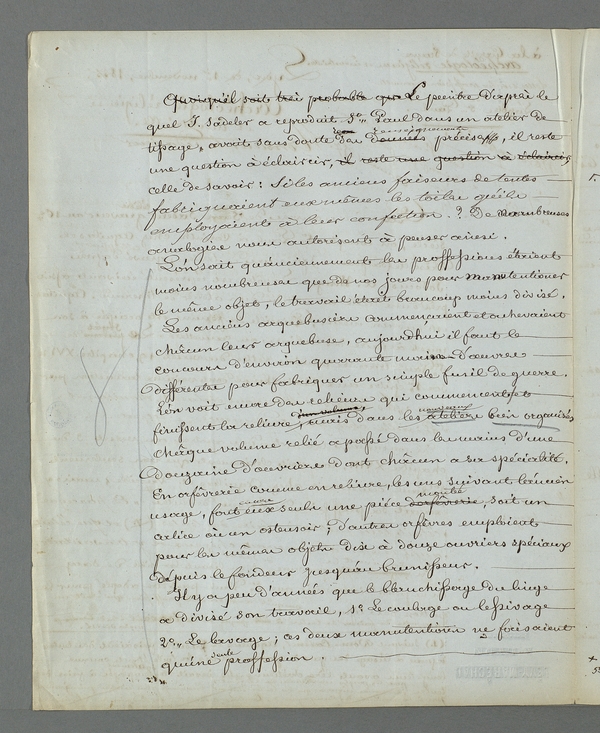 Quoiqu'il soit très probable que Le peintre d'après le
quel J. Sadeler a reproduit St. Paul dans un atelier de
tissage, avait sans doute des données renseignements précis, il reste
une question à éclaircir, il reste une question à éclaircir
celle de savoir: Si les anciens faiseurs de tentes
fabriquaient eux mêmes les toiles qu'ils
employaients à leur confection.? De nombreuses
analogies nous autorisents à penser ainsi.
L'on sait qu'anciennements les proffessions étaient
moins nombreuses que de nos jours pour manutentioner
le même objet, le travail était beaucoup moins divisé.
Les anciens arquebusiers commençaient et achevaient
châcun leurs arquebuse, aujourd'hui il faut le
concours d'environ quarante mains d'oeuvre
differentes pour fabriquer un simple fusil de guerre.
l'on voit encore des relieurs qui commencents et
finissent la reliure d'un volume, mais dans les nouveaux ateliers bien organisés
châque volume relié a passé dans les mains d'une
douzaine d'oeuvriers dont châcun a sa spécialité.
En orfévrerie comme en reliure, les uns suivant l'ancien
usage, font encore eux seuls une pièce d'orfévrerie, soit un
calice ou un ostensoir; d'autres orfévres emploients
pour les mêmes objets dix à douze ouvriers spéciaux
dépuis le fondeur jusqu'au brunisseur.
Il y a peu d'années que le blanchissage du linge
a divisé son travail, 1o Le coulage ou lessivage
2o Le lavage; ces deux manutentions ne faisaient
qu'une seule proffession.